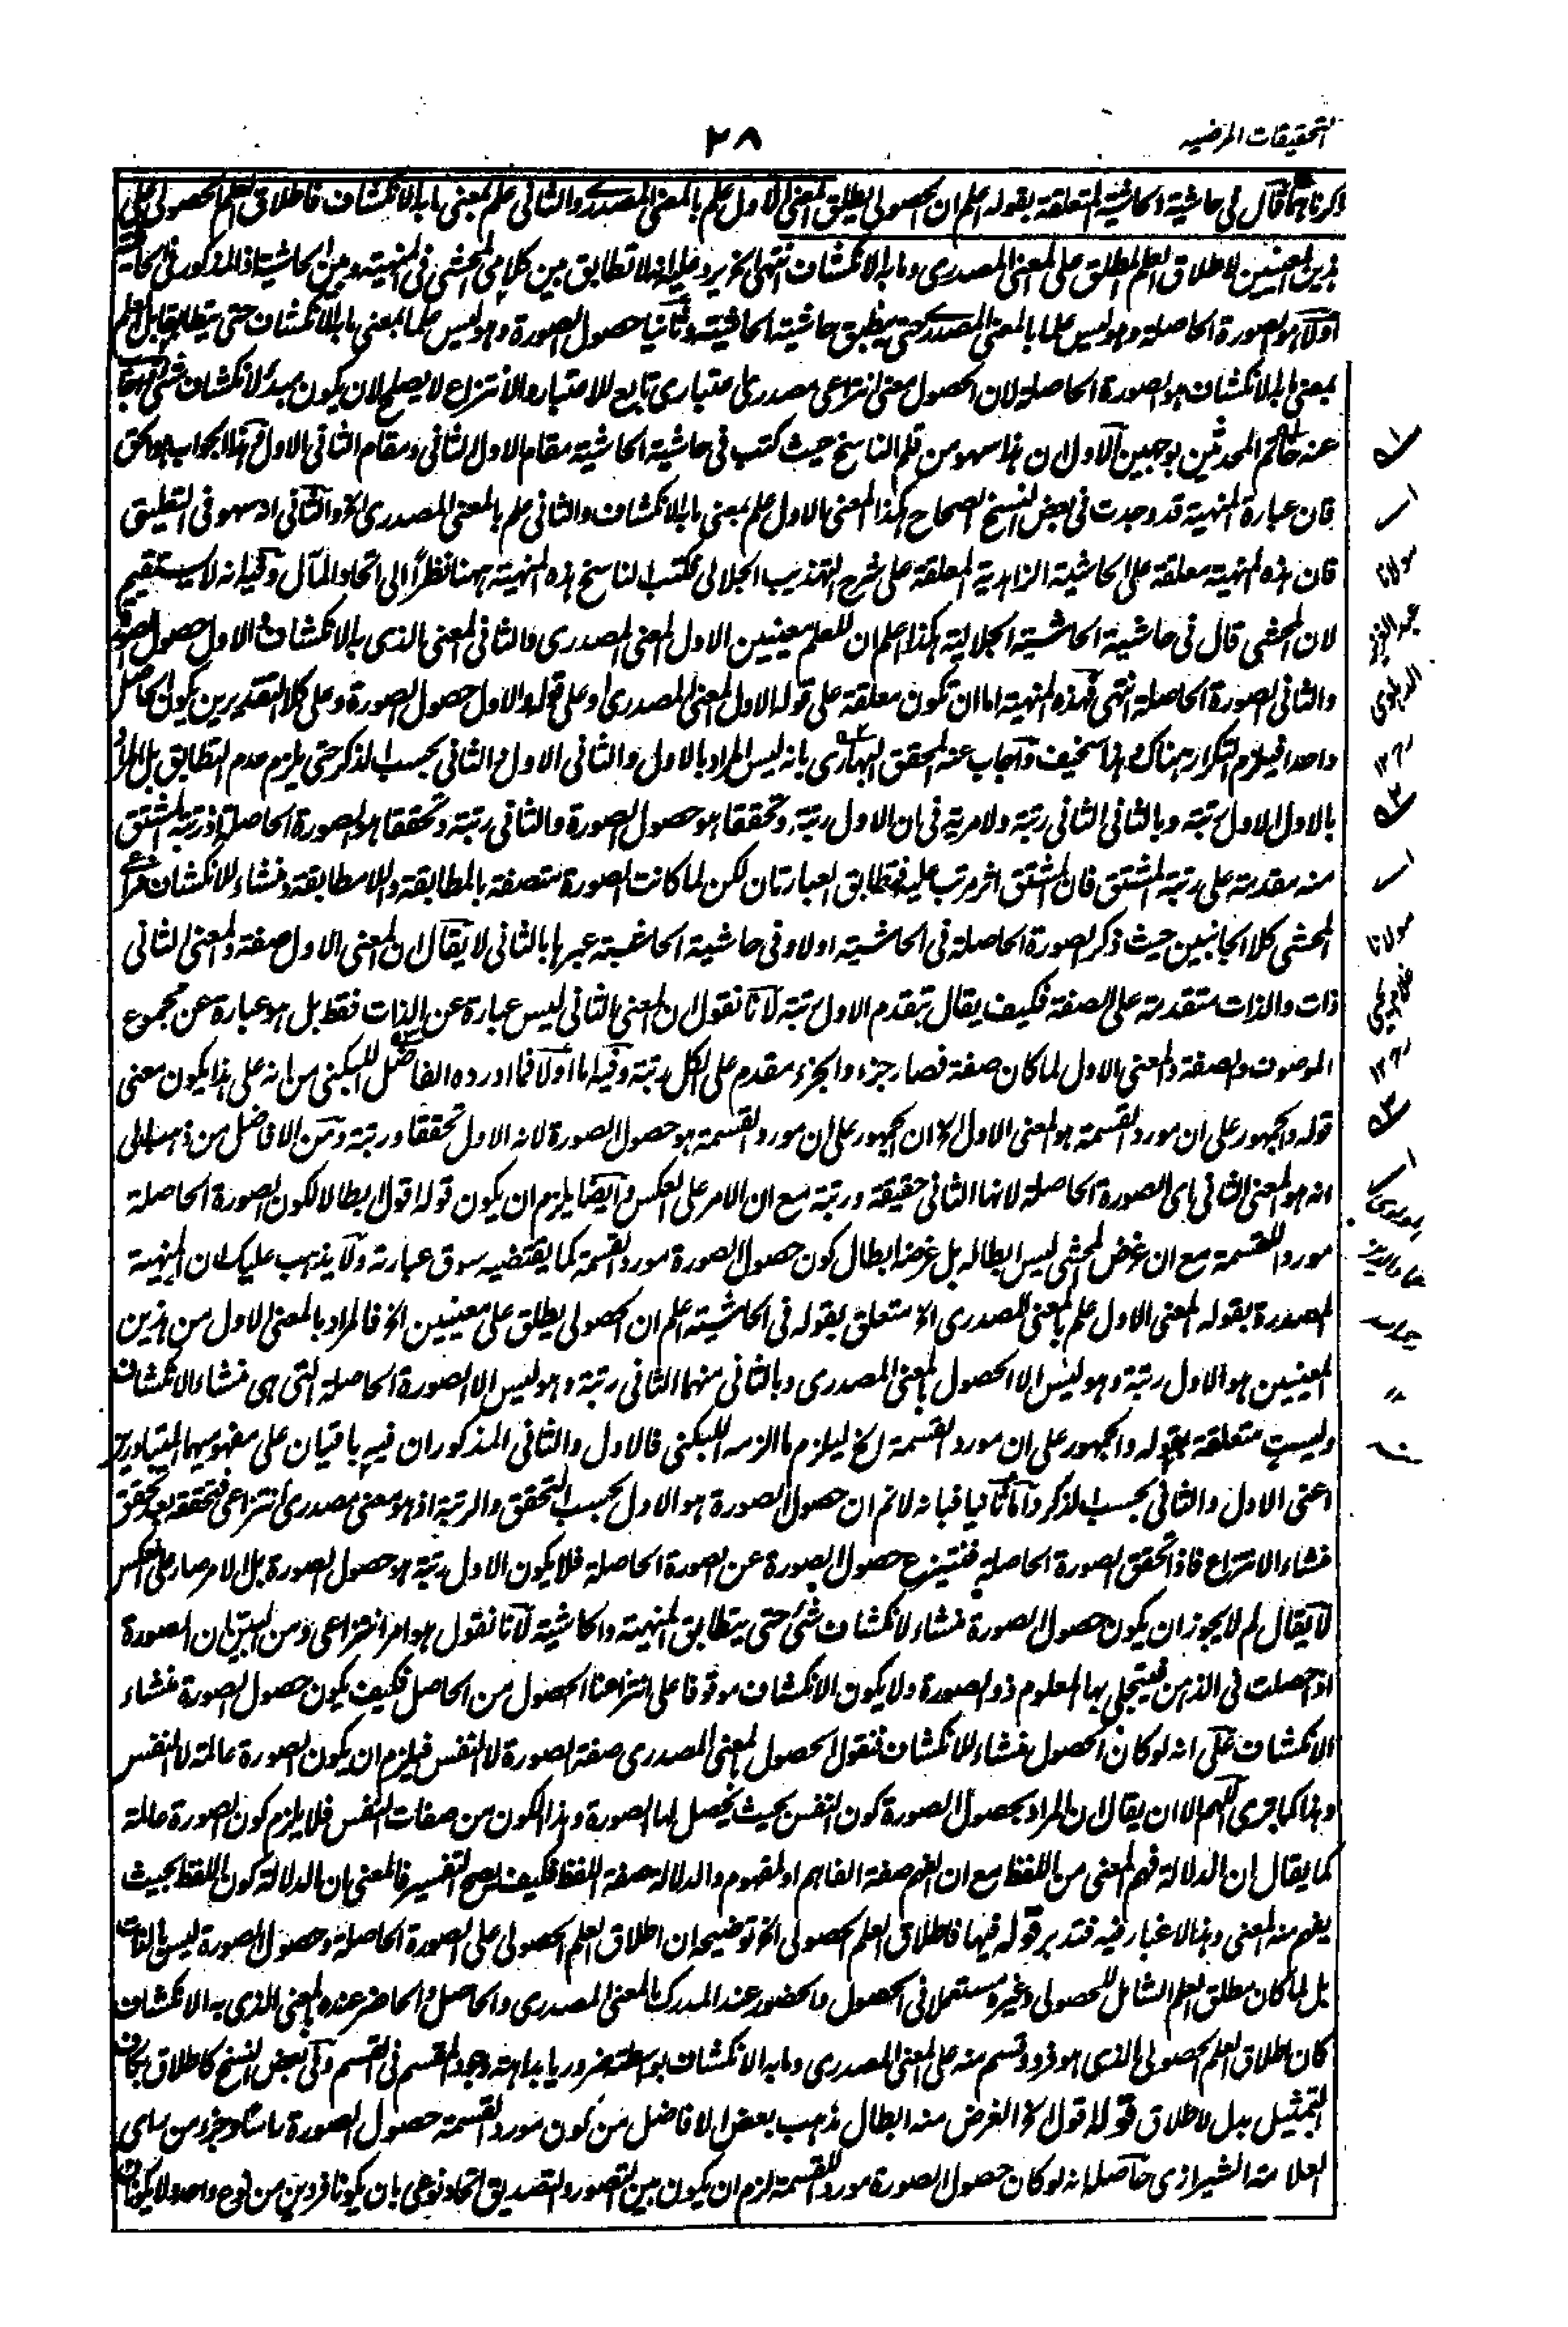 التحقيقات المرضيه
٢٨
ذكرناهما قال فى حاشية الحاشية المتعلقة بقوله اعلم ان الحصولى يطلق المعنى الاول علم بالمعنى المصدرى والثانى علم بمعنى ما به الانكشاف فاطلاق العلم الحصولى على
هذين المعنيين لاطلاق العلم المطلق على المعنى المصدرى وما به الانكشاف انتهى اورد عليه انه لا تطابق بين كلامى المحشى فى المنهية وبين الحاشية اذ المذكور فى الحاشية
اولا هو الصورة الحاصلة وهو ليس علما بالمعنى المصدرى حتى ينطبق حاشية الحاشية وثانيا حصول الصورة وهو ليس علما بمعنى ما به الانكشاف حتى يتطابق بل العلم
بمعنى ما به الانكشاف هو الصورة الحاصلة لان الحصول معنى انتزاعى مصدرى اعتبارى تابع للاعتبار والانتزاع لا يصلح لان يكون مبدأ لانكشاف شئ واجاب
عنه خاتم المحدثين بوجهين الاول ان هذا سهو من قلم الناسخ حيث كتب فى حاشية الحاشية مقام الاول الثانى ومقام الثانى الاول وهذا الجواب هو الحق
فان عبارة المنهية قد وجدت فى بعض النسخ الصحاح هكذا المعنى الاول علم بمعنى ما به الانكشاف والثانى علم بالمعنى المصدرى الخ والثانى انه سهو فى التعليق
فان هذه المنهية معلقة على الحاشية الزاهدية المعلقة على شرح التهذيب الجلالى فكتب الناسخ هذه المنهية ههنا نظرا الى اتحاد المآل وفيه انه لا يستقيم
لان المحشى قال فى حاشية الحاشية الجلالية هكذا اعلم ان للعلم معنيين الاول المعنى المصدرى والثانى المعنى الذى به الانكشاف والاول حصول الصورة
والثانى الصورة الحاصلة انتهى فهذه المنهية اما ان تكون معلقة على قوله الاول المعنى المصدرى او على قوله والاول حصول الصورة وعلى كلا التقديرين يكون الحاصل
واحدا فيلزم التكرار هناك وهذا سخيف واجاب عنه المحقق البهارى بانه ليس المراد بالاول والثانى الاول والثانى بحسب الذكر حتى يلزم عدم التطابق بل المراد
بالاول الاول رتبة وبالثانى الثانى رتبة ولا مرية فى ان الاول رتبة وتحققا هو حصول الصورة والثانى رتبة وتحققا هو الصورة الحاصلة اذ رتبة المشتق
منه مقدمة على رتبة المشتق فان المشتق اثر مرتب عليه فتطابق العبارتان لكن لما كانت الصورة متصفة بالمطابقة واللامطابقة ومنشاء للانكشاف قرأ
المحشى كلا الجانبين حيث ذكر الصورة الحاصلة فى الحاشية اولا وفى حاشية الحاشية عبرها بالثانى لا يقال ان المعنى الاول صفة والمعنى الثانى
ذات والذات متقدمة على الصفة فكيف يقال بتقدم الاول رتبة لانا نقول ان المعنى الثانى ليس عبارة عن الذات فقط بل هو عبارة عن مجموع
الموصوف والصفة والمعنى الاول لما كان صفة فصار جزء والجزء مقدم على الكل رتبة وفيه اما اولا فما اورده الفاضل اللبكنى من انه على هذا يكون معنى
قوله والجمهور على ان مورد القسمة هو المعنى الاول الخ ان الجمهور على ان مورد القسمة هو حصول الصورة لانه الاول تحققا ورتبة ومن الافاضل من ذهب الى
انه هو المعنى الثانى اى الصورة الحاصلة لانها الثانى حقيقة ورتبة مع ان الامر على العكس وايضا يلزم ان يكون قوله اقول ابطالا لكون الصورة الحاصلة
مورد القسمة مع ان غرض المحشى ليس ابطاله بل غرضه ابطال كون حصول الصورة مورد القسمة كما يقتضيه سوق عبارته ولا يذهب عليك ان المنهية
المصدرة بقوله المعنى الاول علم بالمعنى المصدرى الخ متعلق بقوله فى الحاشية اعلم ان الحصولى يطلق على معنيين الخ فالمراد بالمعنى الاول من هذين
المعنيين هو الاول رتبة وهو ليس الا الحصول بالمعنى المصدرى وبالثانى منهما الثانى رتبة وهو ليس الا الصورة الحاصلة التى هى منشاء الانكشاف
وليست متعلقة بقوله والجمهور على ان مورد القسمة الخ ليلزم ما الزمه اللبكنى فالاول والثانى المذكوران فيه باقيان على مفهوميهما المتبادرين
اعنى الاول والثانى بحسب الذكر واما ثانيا فبانه لا نم ان حصول الصورة هو الاول بحسب التحقق والرتبة اذ هو معنى مصدرى انتزاعى فتحققه بعد تحقق
منشاء الانتزاع فاذا تحقق الصورة الحاصلة فتنتزع حصول الصورة عن الصورة الحاصلة فلا يكون الاول رتبة هو حصول الصورة بل الامر صار على العكس
لا يقال لم لا يجوز ان يكون حصول الصورة منشاء لانكشاف شئ حتى يتطابق المنهية والحاشية لانا نقول هو امر انتزاعى ومن البين ان الصورة
اذا حصلت فى الذهن فيتجلى بها المعلوم ذو الصورة ولا يكون الانكشاف موقوفا على انتزاعنا الحصول من الحاصل فكيف يكون حصول الصورة منشاء
الانكشاف على انه لو كان الحصول منشاء للانكشاف فنقول الحصول بالمعنى المصدرى صفة الصورة لا النفس فيلزم ان يكون الصورة عالمة لا النفس
وهذا كما ترى اللهم الا ان يقال ان المراد بحصول الصورة كون النفس بحيث يحصل لها الصورة وهذا الكون من صفات النفس فلا يلزم كون الصورة عالمة
كما يقال ان الدلالة فهم المعنى من اللفظ مع ان الفهم صفة الفاهم او المفهوم والدلالة صفة اللفظ فكيف يصح التفسير فالمعنى بان الدلالة كون اللفظ بحيث
يفهم منه المعنى وهذا لا غبار فيه فتدبر قوله فيها فاطلاق العلم الحصولى الخ توضيحه ان اطلاق العلم الحصولى على الصورة الحاصلة وحصول الصورة ليس بالذات
بل لما كان مطلق العلم الشامل للحصولى وغيره مستعملا فى الحصول والحضور عند المدرك بالمعنى المصدرى والحاصل والحاضر عنده بالمعنى الذى به الانكشاف
كان اطلاق العلم الحصولى الذى هو فرد وقسم منه على المعنى المصدرى وما به الانكشاف بواسطته ضروريا بداهة وجود المقسم فى القسم وفى بعض النسخ كاطلاق بكاف
التمثيل بدل لاطلاق قوله اقول الخ الغرض منه ابطال مذهب بعض الافاضل من كون مورد القسمة حصول الصورة باستاد جزء من رساى
العلامة الشيرازى حاصله انه لو كان حصول الصورة مورد القسمة لزم ان يكون بين التصور والتصديق اتحاد نوعى بان يكونا فردين من نوع واحد ولا يكونان
١ه
مولانا
عبد العزيز
الدهلوى
١٢ منه
٢ه
مولانا
١٢ منه
٣ه